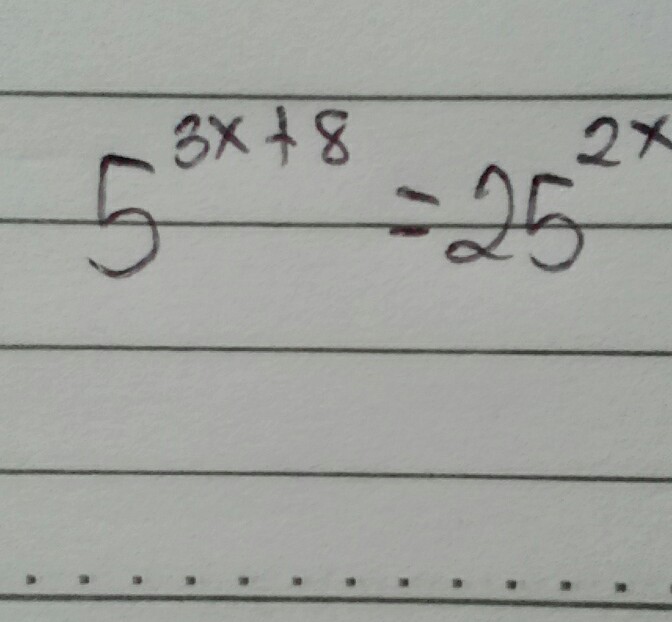 5^{3x+8} = 25^{2x}